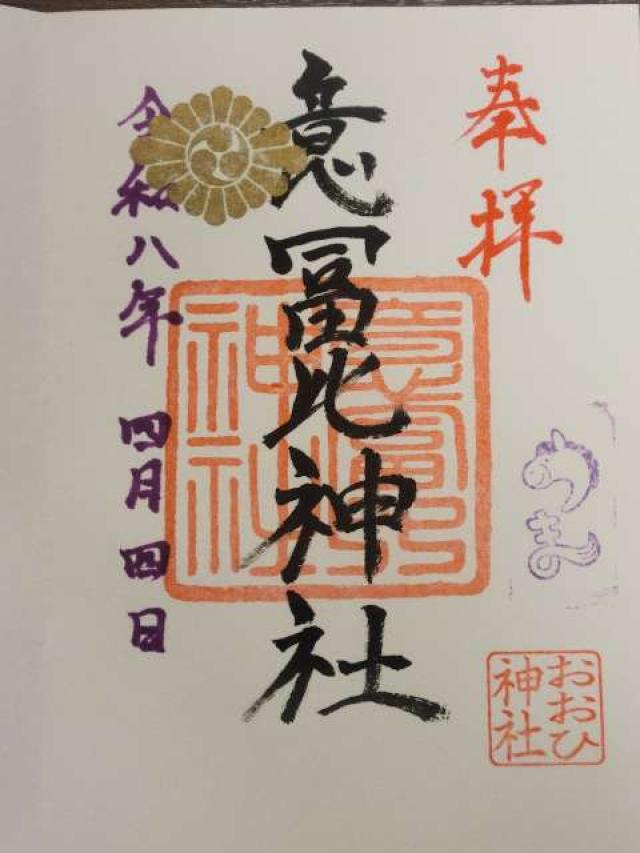 奉拝
意冨比神社
令和八年 四月四日
うま
おおひ
神社